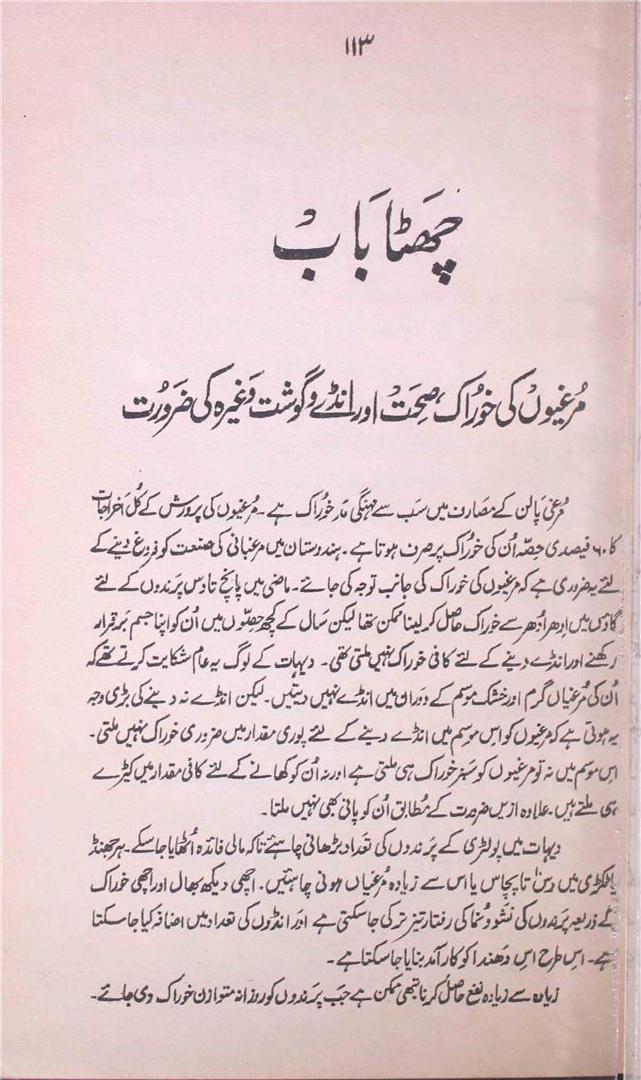 ۱۱۳
چھٹا باب
مرغیوں کی خوراک، صحت اور انڈے و گوشت وغیرہ کی ضرورت
مرغی پالن کے مصارف میں سب سے مہنگی مد خوراک ہے۔ مرغیوں کی پرورش کے کل اخراجات
کا ۶۰ فیصدی حصہ اُن کی خوراک پر صرف ہوتا ہے۔ ہندوستان میں مرغبانی کی صنعت کو فروغ دینے کے
لئے یہ ضروری ہے کہ مرغیوں کی خوراک کی جانب توجہ کی جائے۔ ماضی میں پانچ تا دس پرندوں کے لئے
گاؤں میں اِدھر اُدھر سے خوراک حاصل کر لینا ممکن تھا لیکن سال کے کچھ حصّوں میں اُن کو اپنا جسم برقرار
رکھنے اور انڈے دینے کے لئے کافی خوراک نہیں ملتی تھی۔ دیہات کے لوگ یہ عام شکایت کرتے تھے کہ
اُن کی مرغیاں گرم اور خشک موسم کے دوران میں انڈے نہیں دیتیں۔ لیکن انڈے نہ دینے کی بڑی وجہ
یہ ہوتی ہے کہ مرغیوں کو اس موسم میں انڈے دینے کے لئے پوری مقدار میں ضروری خوراک نہیں ملتی۔
اِس موسم میں نہ تو مرغیوں کو سبز خوراک ہی ملتی ہے اور نہ اُن کو کھانے کے لئے کافی مقدار میں کیڑے
ہی ملتے ہیں۔ علاوہ ازیں ضرورت کے مطابق اُن کو پانی بھی نہیں ملتا۔
دیہات میں پولٹری کے پرندوں کی تعداد بڑھانی چاہئے تاکہ مالی فائدہ اُٹھایا جا سکے۔ ہر جھنڈ
یا ٹکڑی میں دس تا پچاس یا اس سے زیادہ مرغیاں ہونی چاہئیں۔ اچھی دیکھ بھال اور اچھی خوراک
کے ذریعہ پرندوں کی نشوونما کی رفتار تیز تر کی جا سکتی ہے اور انڈوں کی تعداد میں اضافہ کیا جا سکتا
ہے۔ اس طرح اس دھندا کو کارآمد بنایا جا سکتا ہے۔
زیادہ سے زیادہ نفع حاصل کرنا تبھی ممکن ہے جب پرندوں کو روزانہ متوازن خوراک دی جائے۔